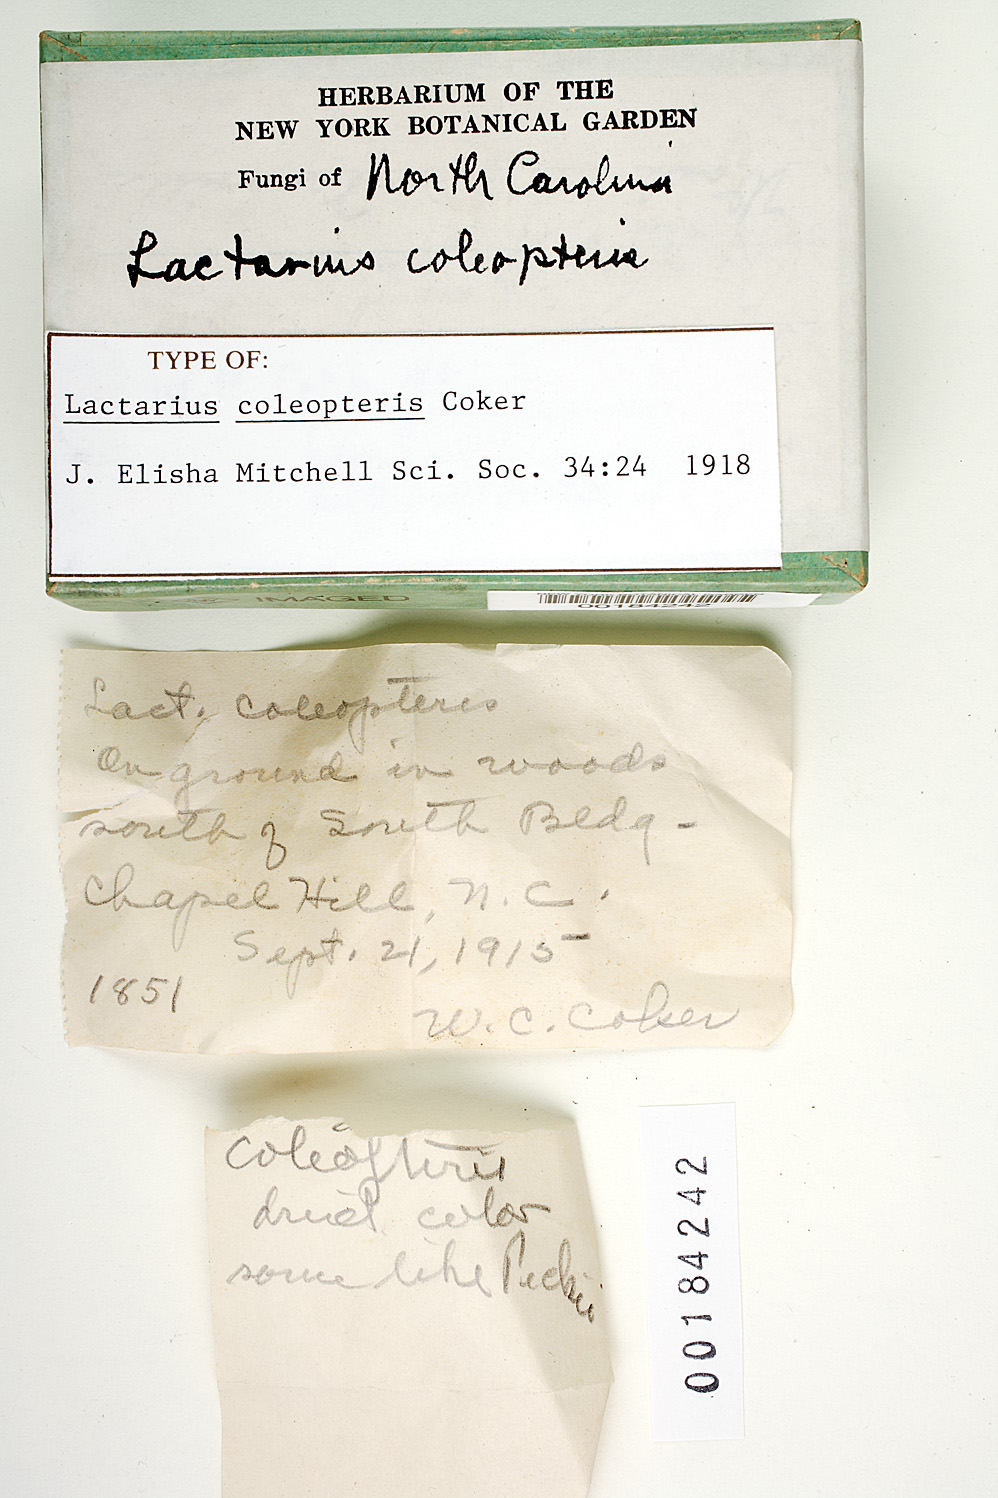 HERBARIUM OF THE
NEW YORK BOTANICAL GARDEN
Fungi of North Carolina
Lactarius coleopteris
TYPE OF:
Lactarius coleopteris Coker
J. Elisha Mitchell Sci. Soc. 34:24 1918
IMAGED
00184242
Lact. coleopteris
On ground in woods
south of South Bldg-
Chapel Hill, N.C.
Sept. 21, 1915
1851
W.C. Coker
coleopteris
dried color
some like Peckii
00184242